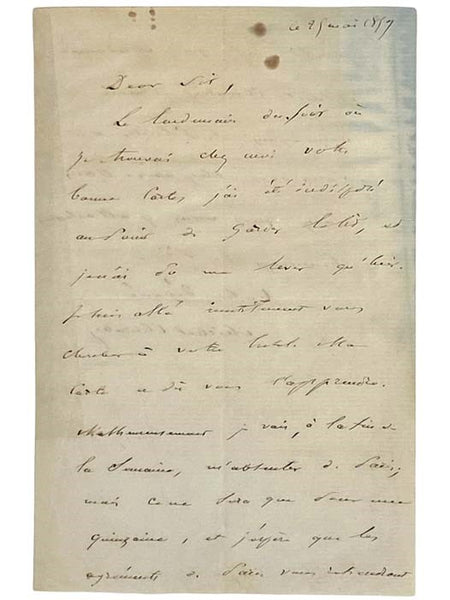 le 25 mai 1857
Dear Sir,
Le lendemain du jour où
je trouvais chez moi votre
bonne carte, j'ai été indisposé
au point de garder le lit, et
je n'ai pu me lever qu'hier.
Je suis allé inutilement vous
chercher à votre hôtel. Ma
carte a dû vous l'apprendre.
Malheureusement je vais, à la fin de
la semaine, m'absenter de Paris;
mais ce ne sera que pour une
quinzaine, et j'espère que les
agréments de Paris vous retiendront